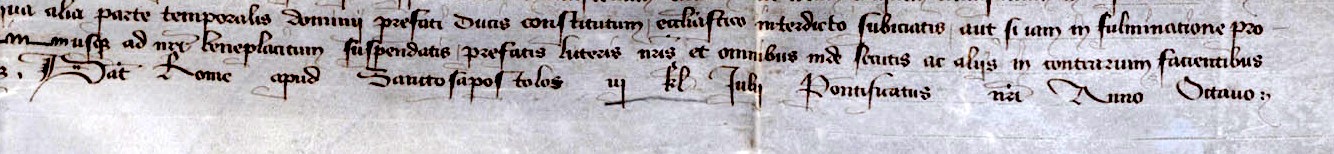 qua alia parte temporalis dominii prefati Ducis constitutum, ecclīastico interdicto subiciatis aut si iam in fulminatione pro
musqz ad nr̄m beneplacitum suspendatis prefatis litteris nr̄is et omnibus inde secutis ac alijs in contrarium facientibus
Dat̄ Rome apud Sanctosapostolos iij kl̄ Julij Pontificatus nr̄i Anno Octauo :